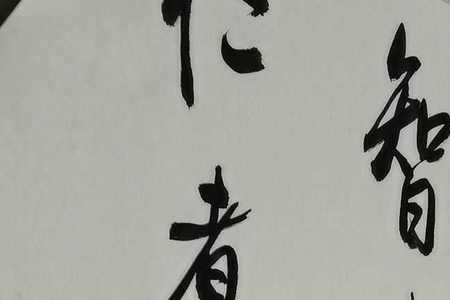 智
仁者